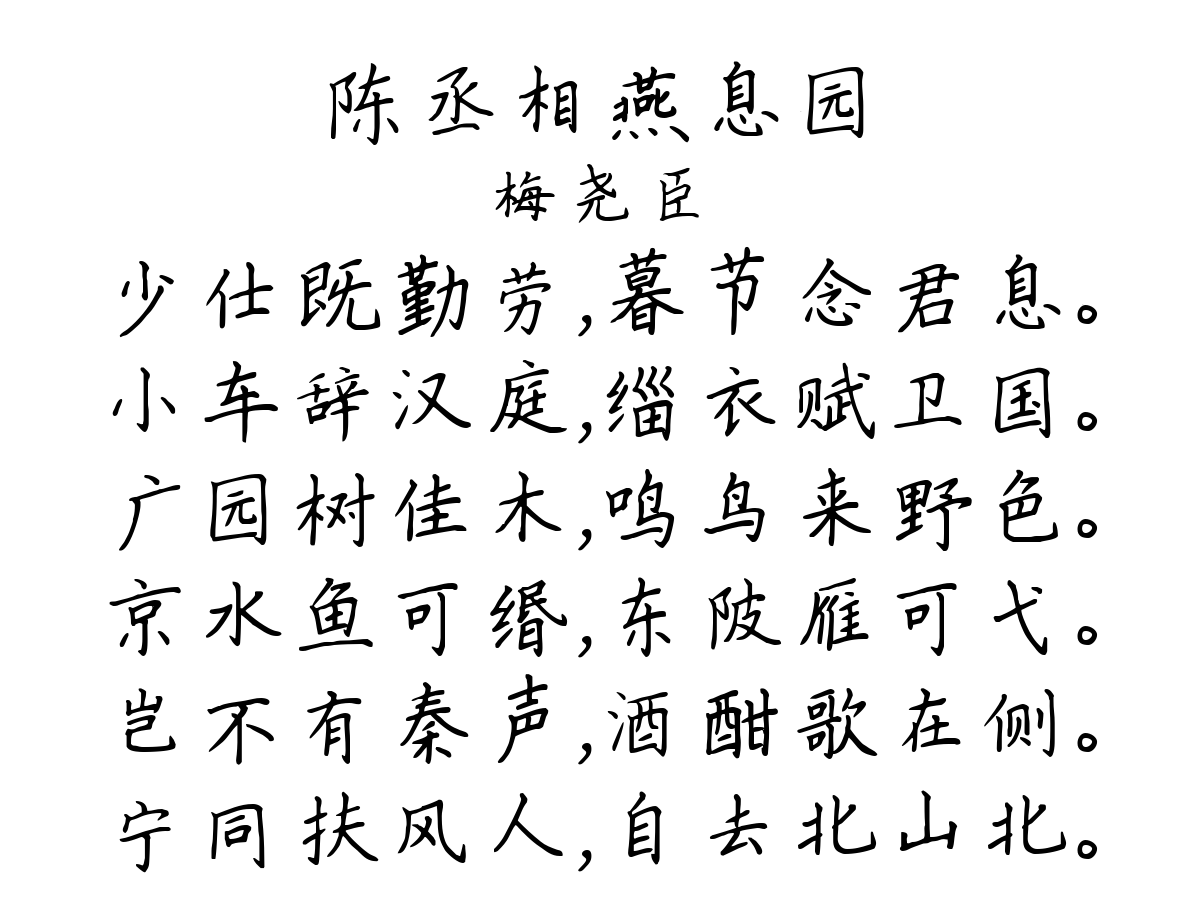 陈丞相燕息园
梅尧臣
少仕既勤劳,暮节念君息。
小车辞汉庭,缁衣赋卫国。
广园树佳木,鸣鸟来野色。
京水鱼可缗,东陂雁可弋。
岂不有秦声,酒酣歌在侧。
宁同扶风人,自去北山北。